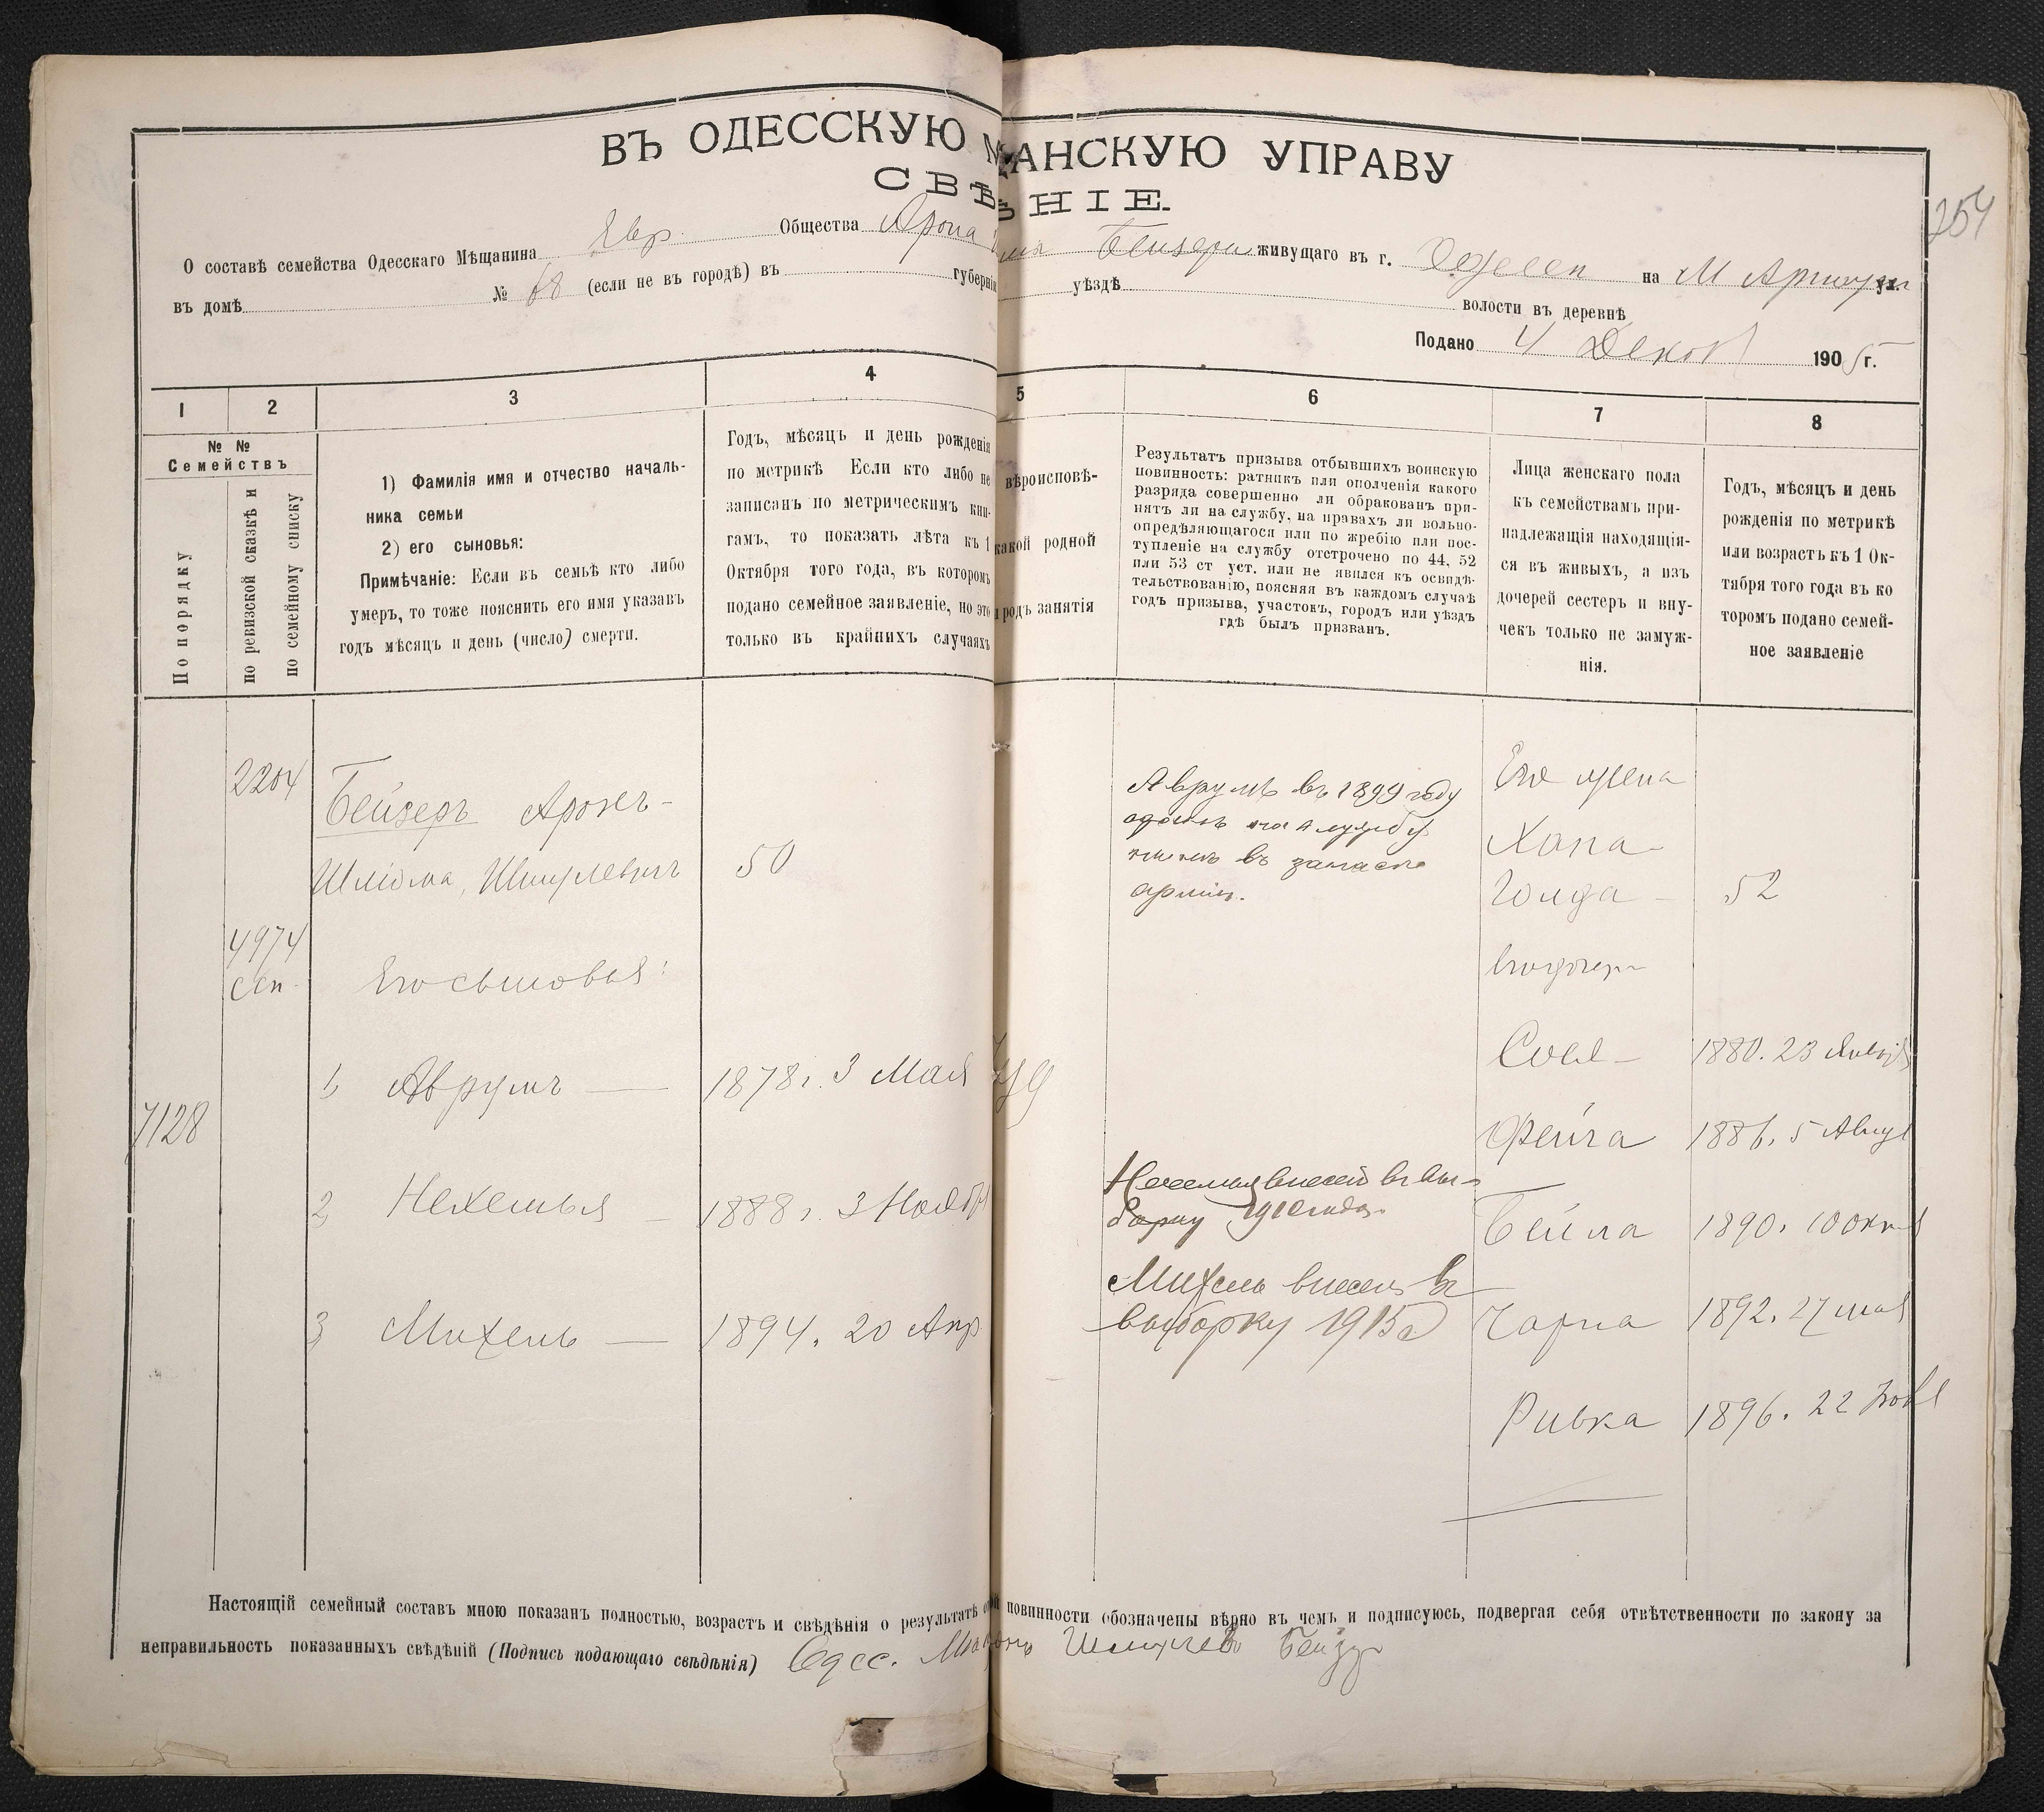 ВЪ ОДЕССКУЮ М АНСКУЮ УПРАВУ
СВѢ НІЕ.
254
О составѣ семейства Одесскаго Мѣщанина Евр. Общества Арона Бейзера живущаго въ г. Одессѣ на М Арнаут ул.
въ домѣ № 68 (если не въ городѣ) въ губерніи уѣздѣ волости въ деревнѣ
Подано 4 Декаб 1905 г.
1 2 3 4 5 6 7 8
№ №
Семействъ
По порядку
по ревизской сказкѣ и
по семейному списку
1) Фамилія имя и отчество началь-
ника семьи
2) его сыновья:
Примѣчаніе: Если въ семьѣ кто либо
умеръ, то тоже пояснить его имя указавъ
годъ мѣсяцъ и день (число) смерти.
Годъ, мѣсяцъ и день рожденія
по метрикѣ Если кто либо не
записанъ по метрическимъ кни-
гамъ, то показать лѣта къ 1
Октября того года, въ которомъ
подано семейное заявленіе, но это
только въ крайнихъ случаяхъ
вѣроисповѣ-
какой родной
и родъ занятія
Результатъ призыва отбывшихъ воинскую
повинность: ратникъ или ополченія какого
разряда совершенно ли обракованъ при-
нятъ ли на службу, на правахъ ли вольно-
опредѣляющагося или по жребію или пос-
тупленіе на службу отстрочено по 44, 52
или 53 ст уст. или не явился къ освидѣ-
тельствованію, поясняя въ каждомъ случаѣ
годъ призыва, участокъ, городъ или уѣздъ
гдѣ былъ призванъ.
Лица женскаго пола
къ семействамъ при-
надлежащія находящія-
ся въ живыхъ, а изъ
дочерей сестеръ и вну-
чекъ только не замуж-
нія.
Годъ, мѣсяцъ и день
рожденія по метрикѣ
или возрастъ къ 1 Ок-
тября того года въ ко
торомъ подано семей-
ное заявленіе
2204
Бейзеръ Аронъ-
Шліома Шмулевичъ 50
4974
ссп.
Его сыновья:
1 Аврумъ — 1878 г. 3 Мая
7128
2 Нехемья — 1888 г. 3 Ноября
3 Михель — 1894. 20 Апр.
Аврумъ въ 1899 году
на службу
въ запасѣ
арміи.
Нехемья внесенъ въ вы-
борку 1910 года
Михель внесенъ въ
выборку 1915 г
Его жена
Хана-
Голда - 52
его дочери
Сося - 1880. 23 Января
Фейга 1886. 5 Авгус
Бейла 1890. 10 Окт
Чарна 1892. 27 мая
Ривка 1896. 22 Ноя
Настоящій семейный составъ мною показанъ полностью, возрастъ и свѣдѣнія о результатѣ повинности обозначены вѣрно въ чемъ и подписуюсь, подвергая себя отвѣтственности по закону за
неправильность показанныхъ свѣдѣній (Подпись подающаго свѣдѣнія) Одес. Шмулевъ Бейзер